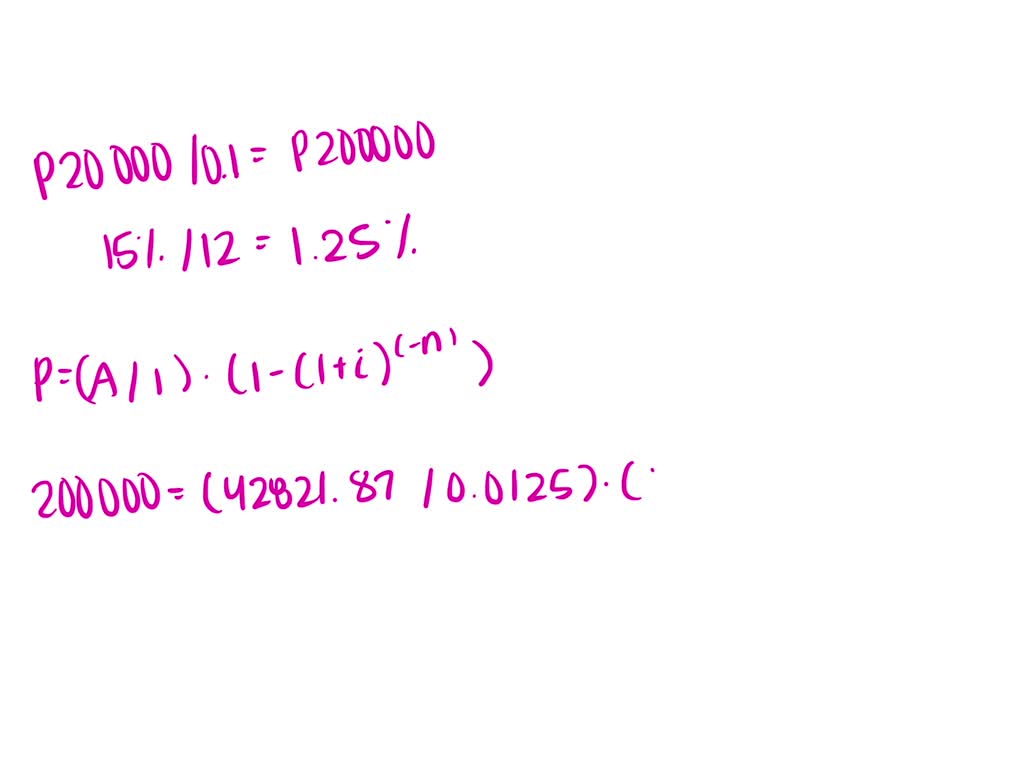 P20 000 / 0.1 = P200000
15% / 12 = 1.25%
P = (A / 1) · (1 - (1 + i)^(-n))
200000 = (42821.87 / 0.0125) · (